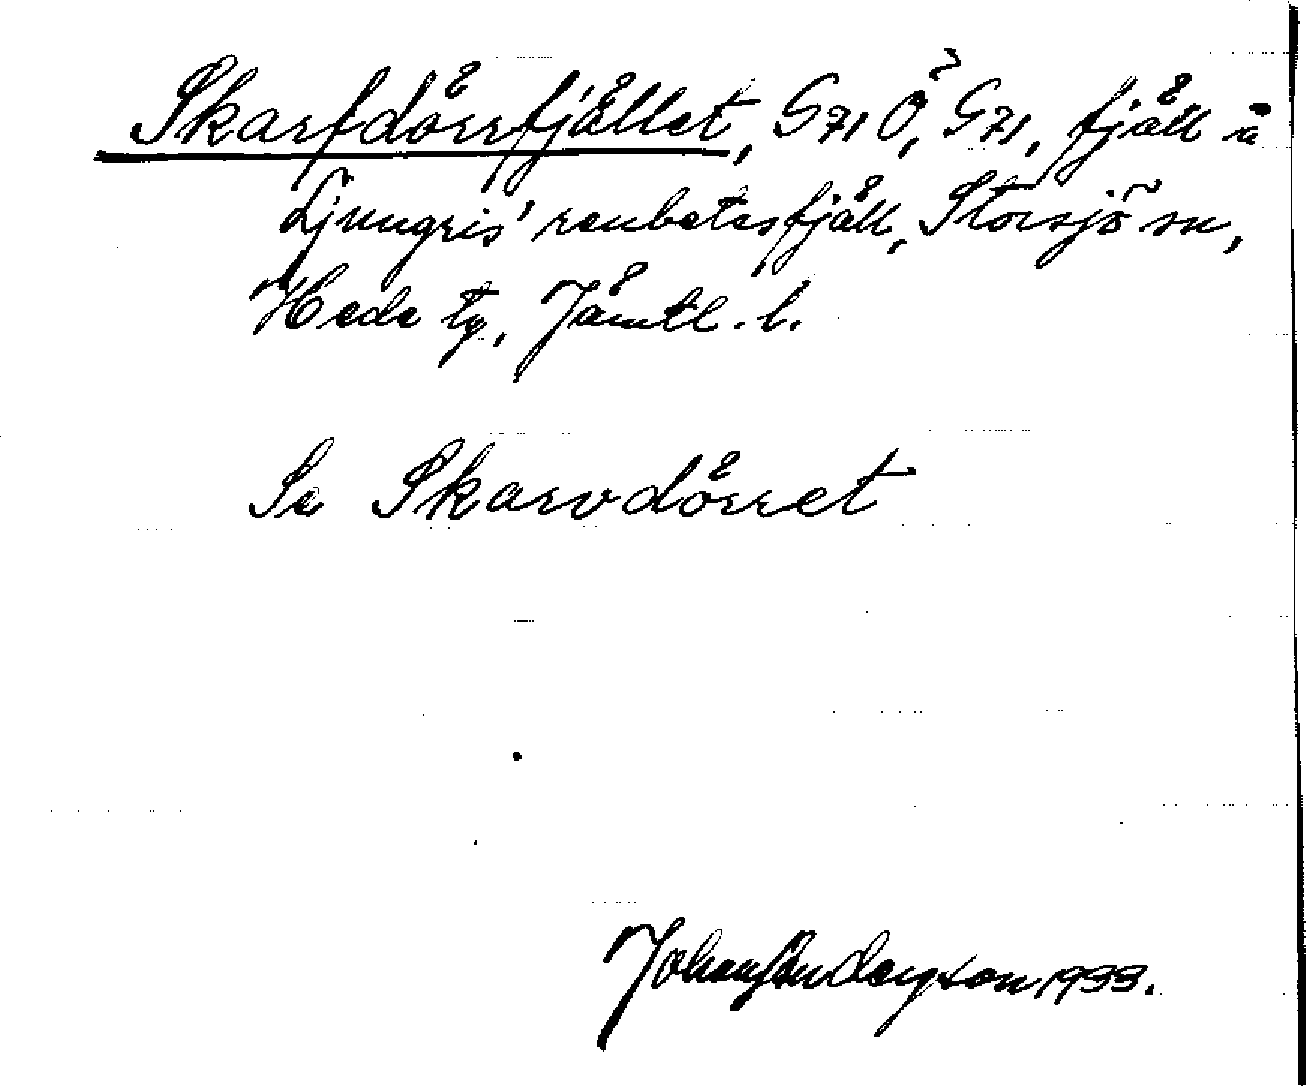 Skarfdörrfjället, G71Ö, G71, fjäll å
Ljungris' renbetesfjäll, Storsjö sn,
Hede tg, Jämtl. l.
Se Skarvdörret
Johan Andersson 1933.